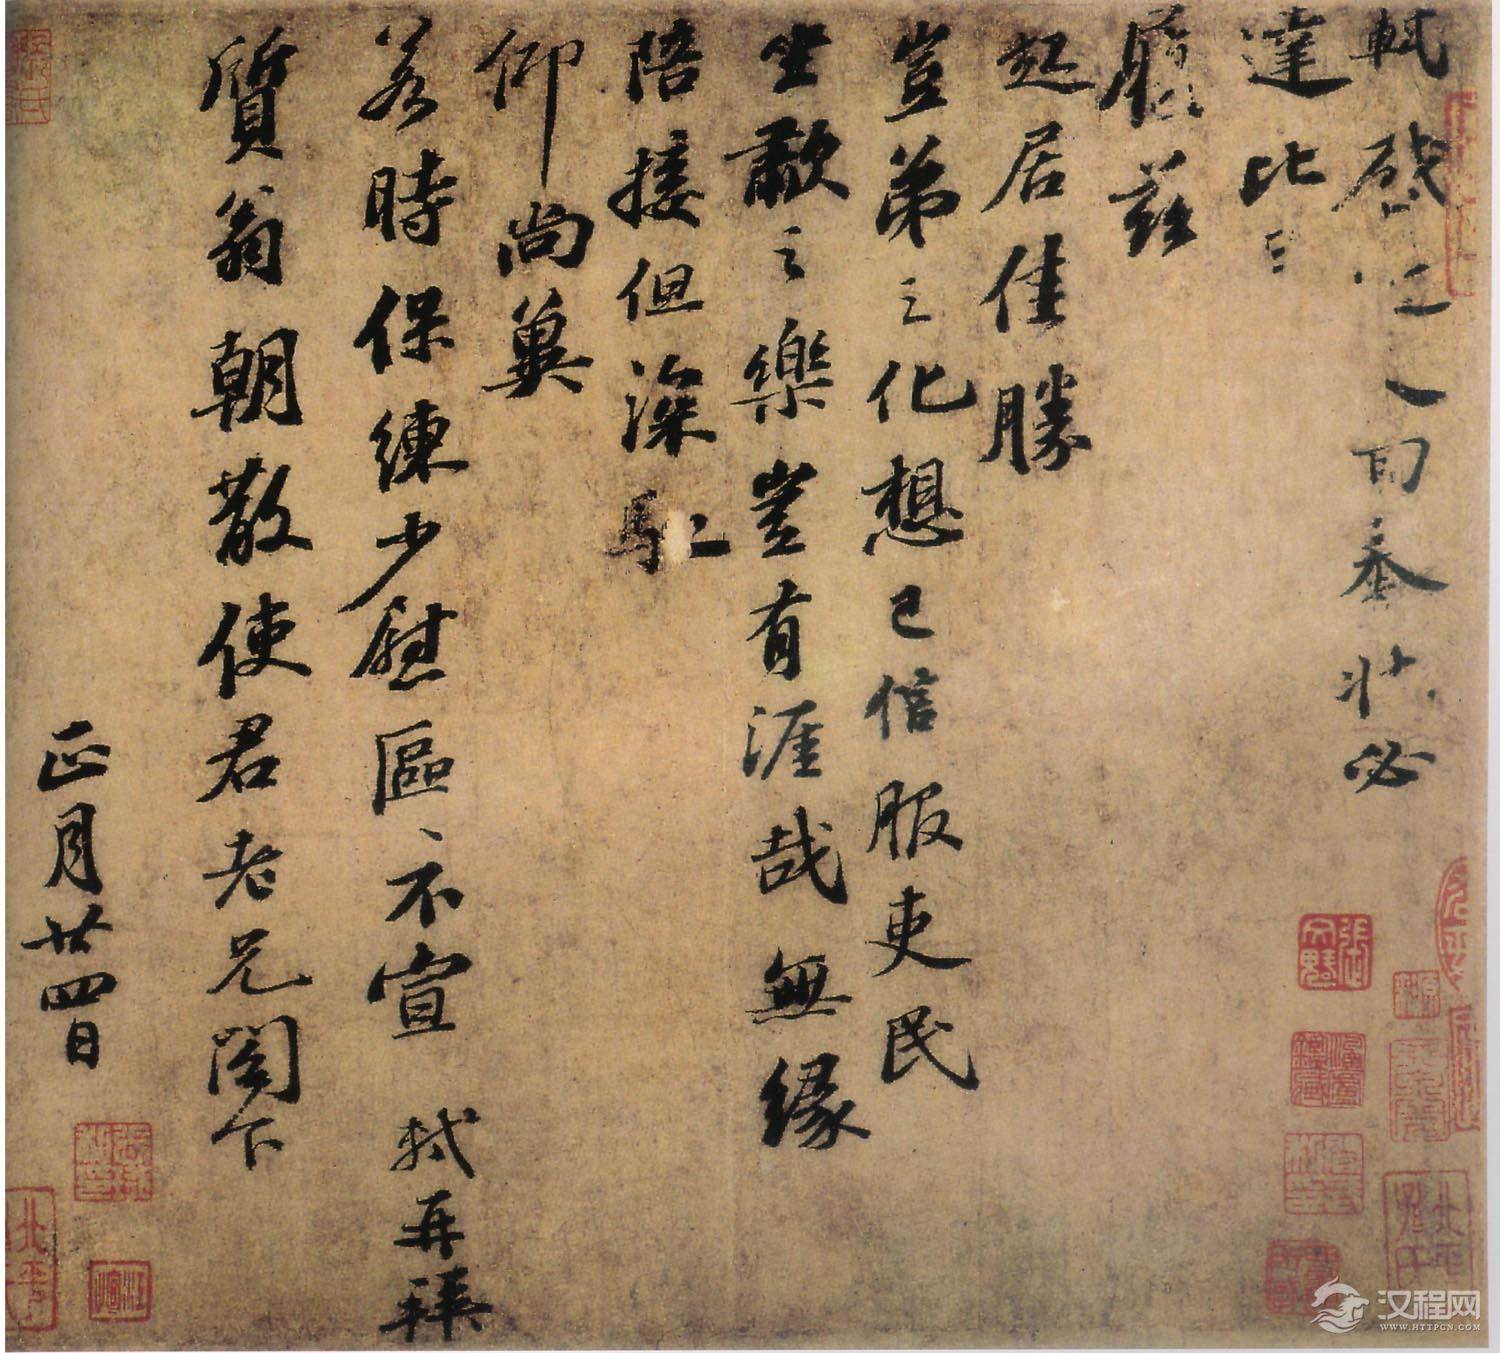 軾啓近人回奉狀必
達比〻
履茲
起居佳勝
豈弟之化想已信服吏民
坐歗之樂豈有涯哉無緣
陪接但深馳
仰尚冀
若時保練少慰區〻不宣 軾再拜
質翁朝散使君老兄閣下
正月廿四日
張文魁
汉程网
WWW.HTTPCN.COM